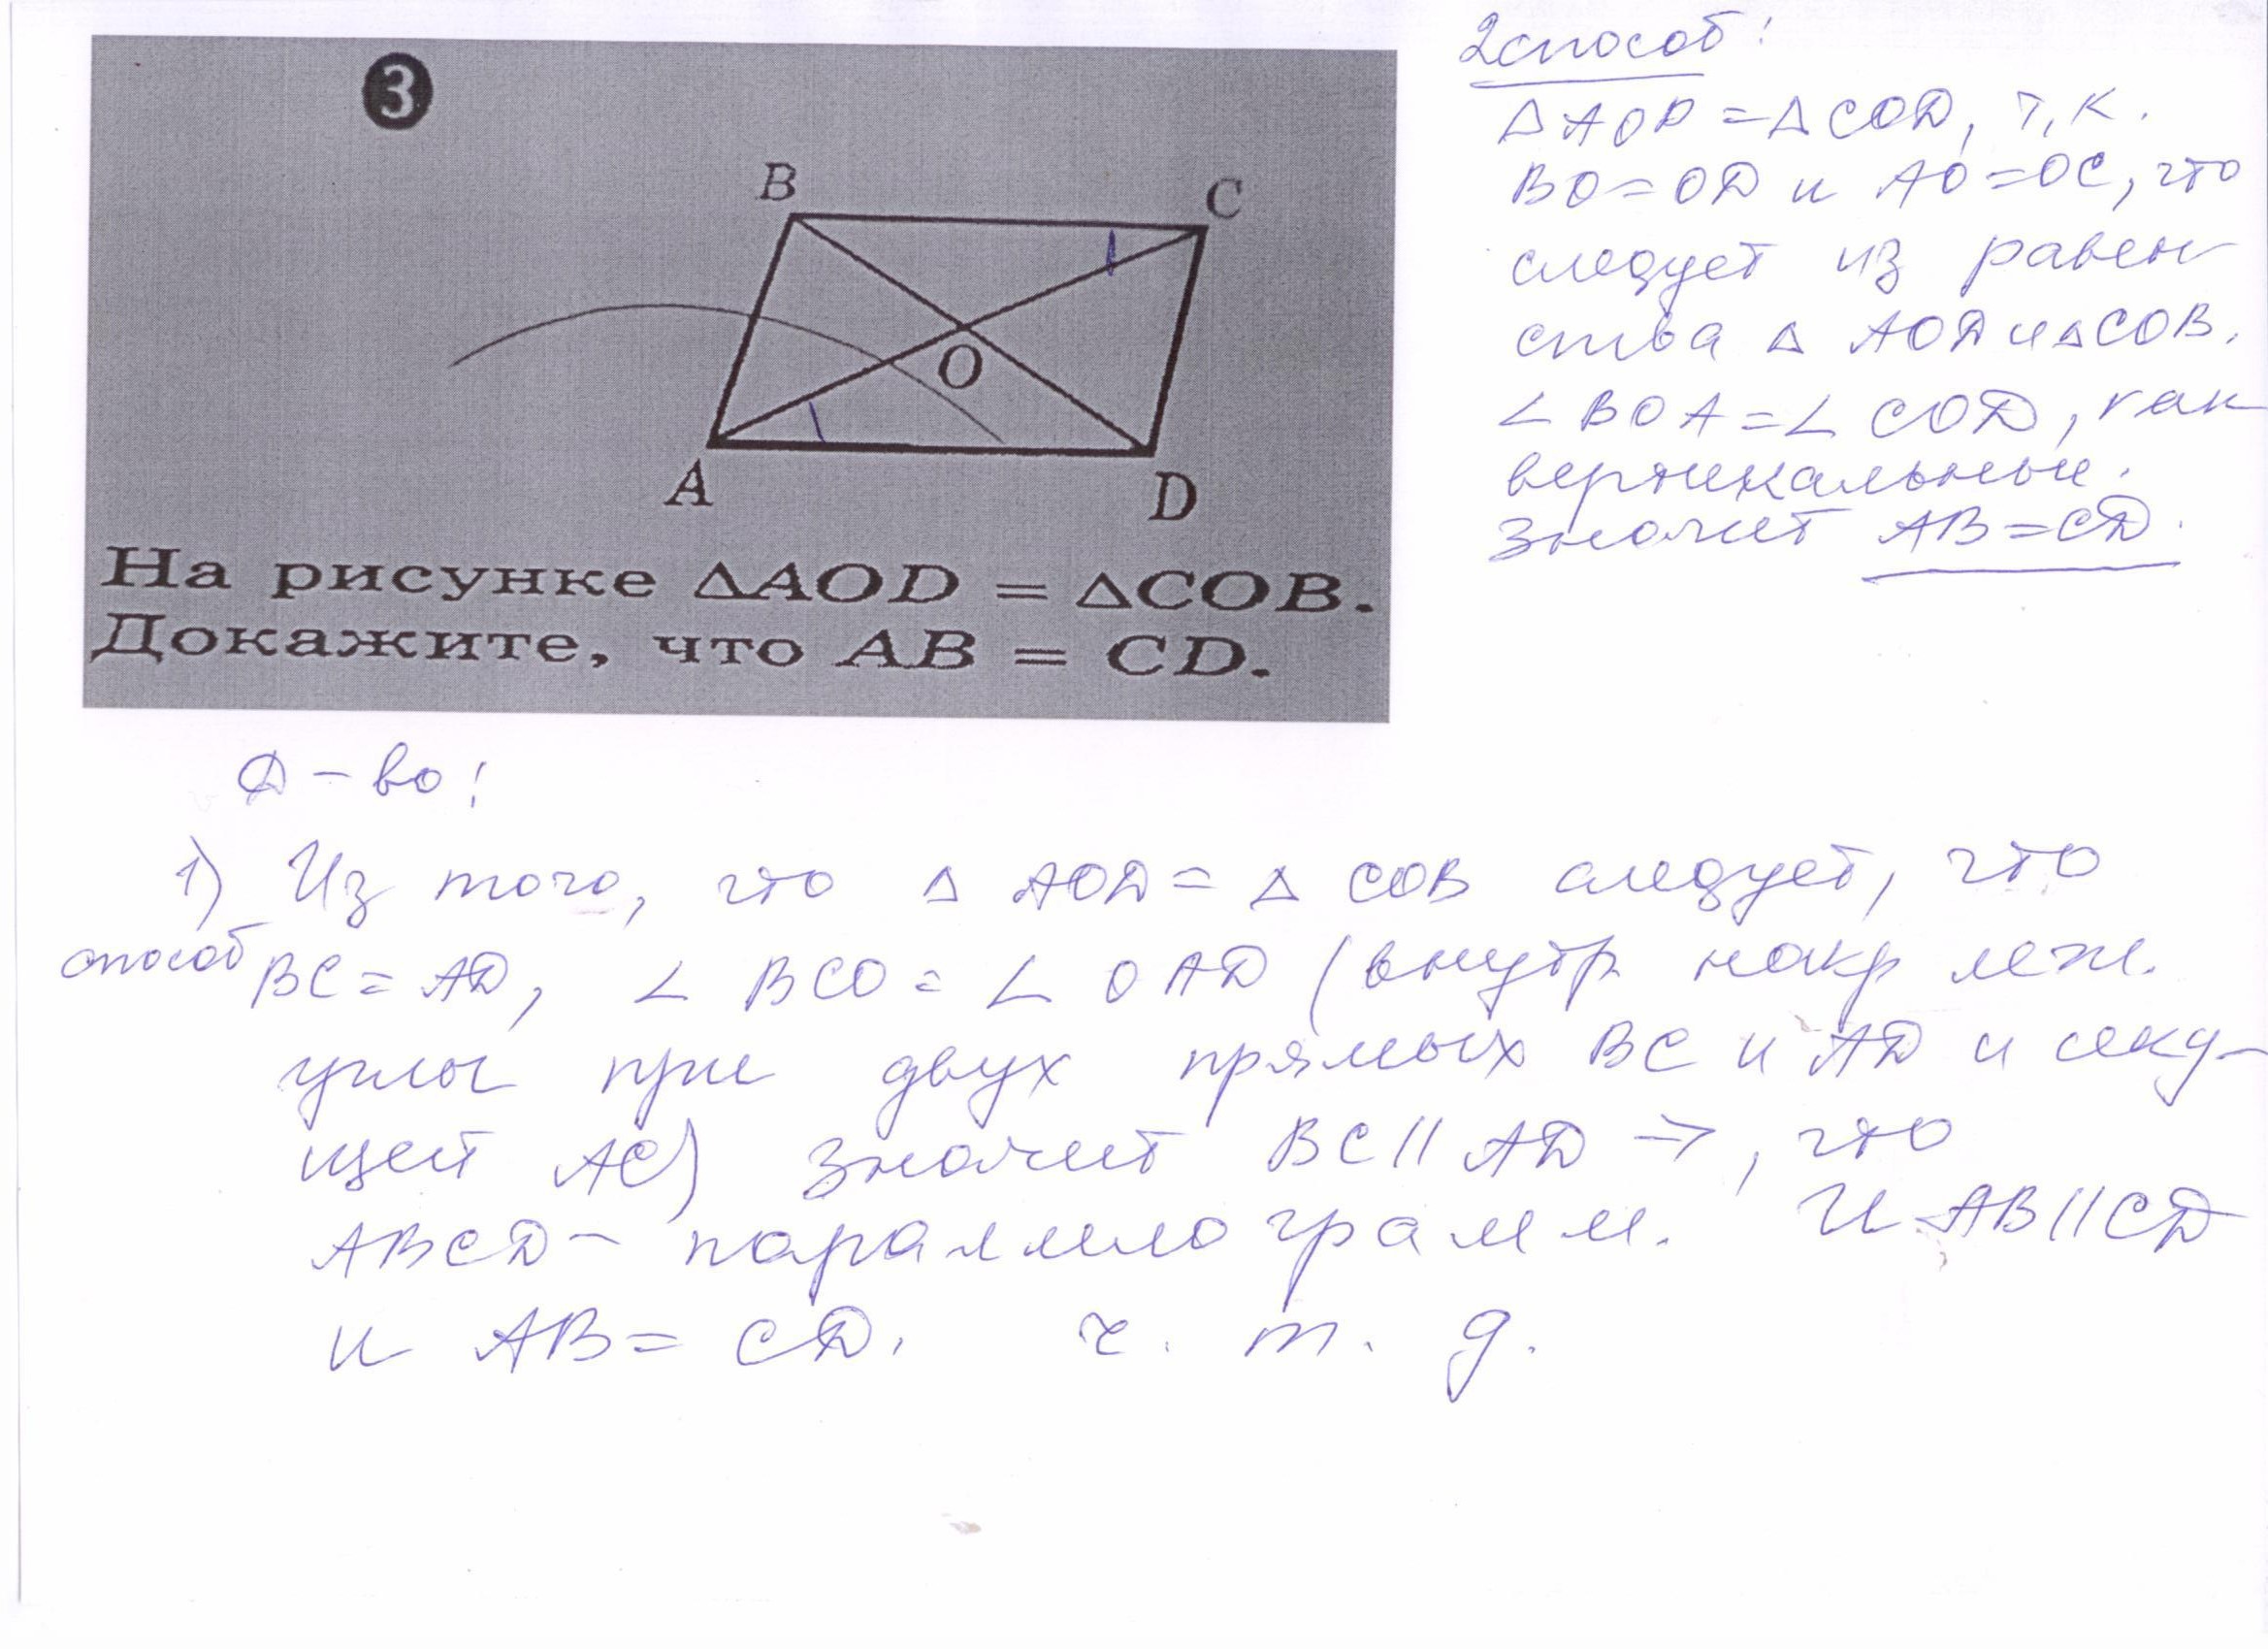 3
B
C
O
A
D
На рисунке △AOD = △COB.
Докажите, что AB = CD.
2 способ:
△ AOP = △ COD, т.к.
BO = OD и AO = OC, что
следует из равен
ства △ AOD и △ COB.
∠ BOA = ∠ COD, как
вертикальные.
Значит AB = CD.
Д-во:
1) Из того, что △ AOD = △ COB следует, что
способ BC = AD, ∠ BCO = ∠ OAD (внутр накр леж.
углы при двух прямых BC и AD и секу-
щей AC) значит BC || AD →, что
ABCD - параллелограмм. И AB || CD
и AB = CD. ч. т. д.